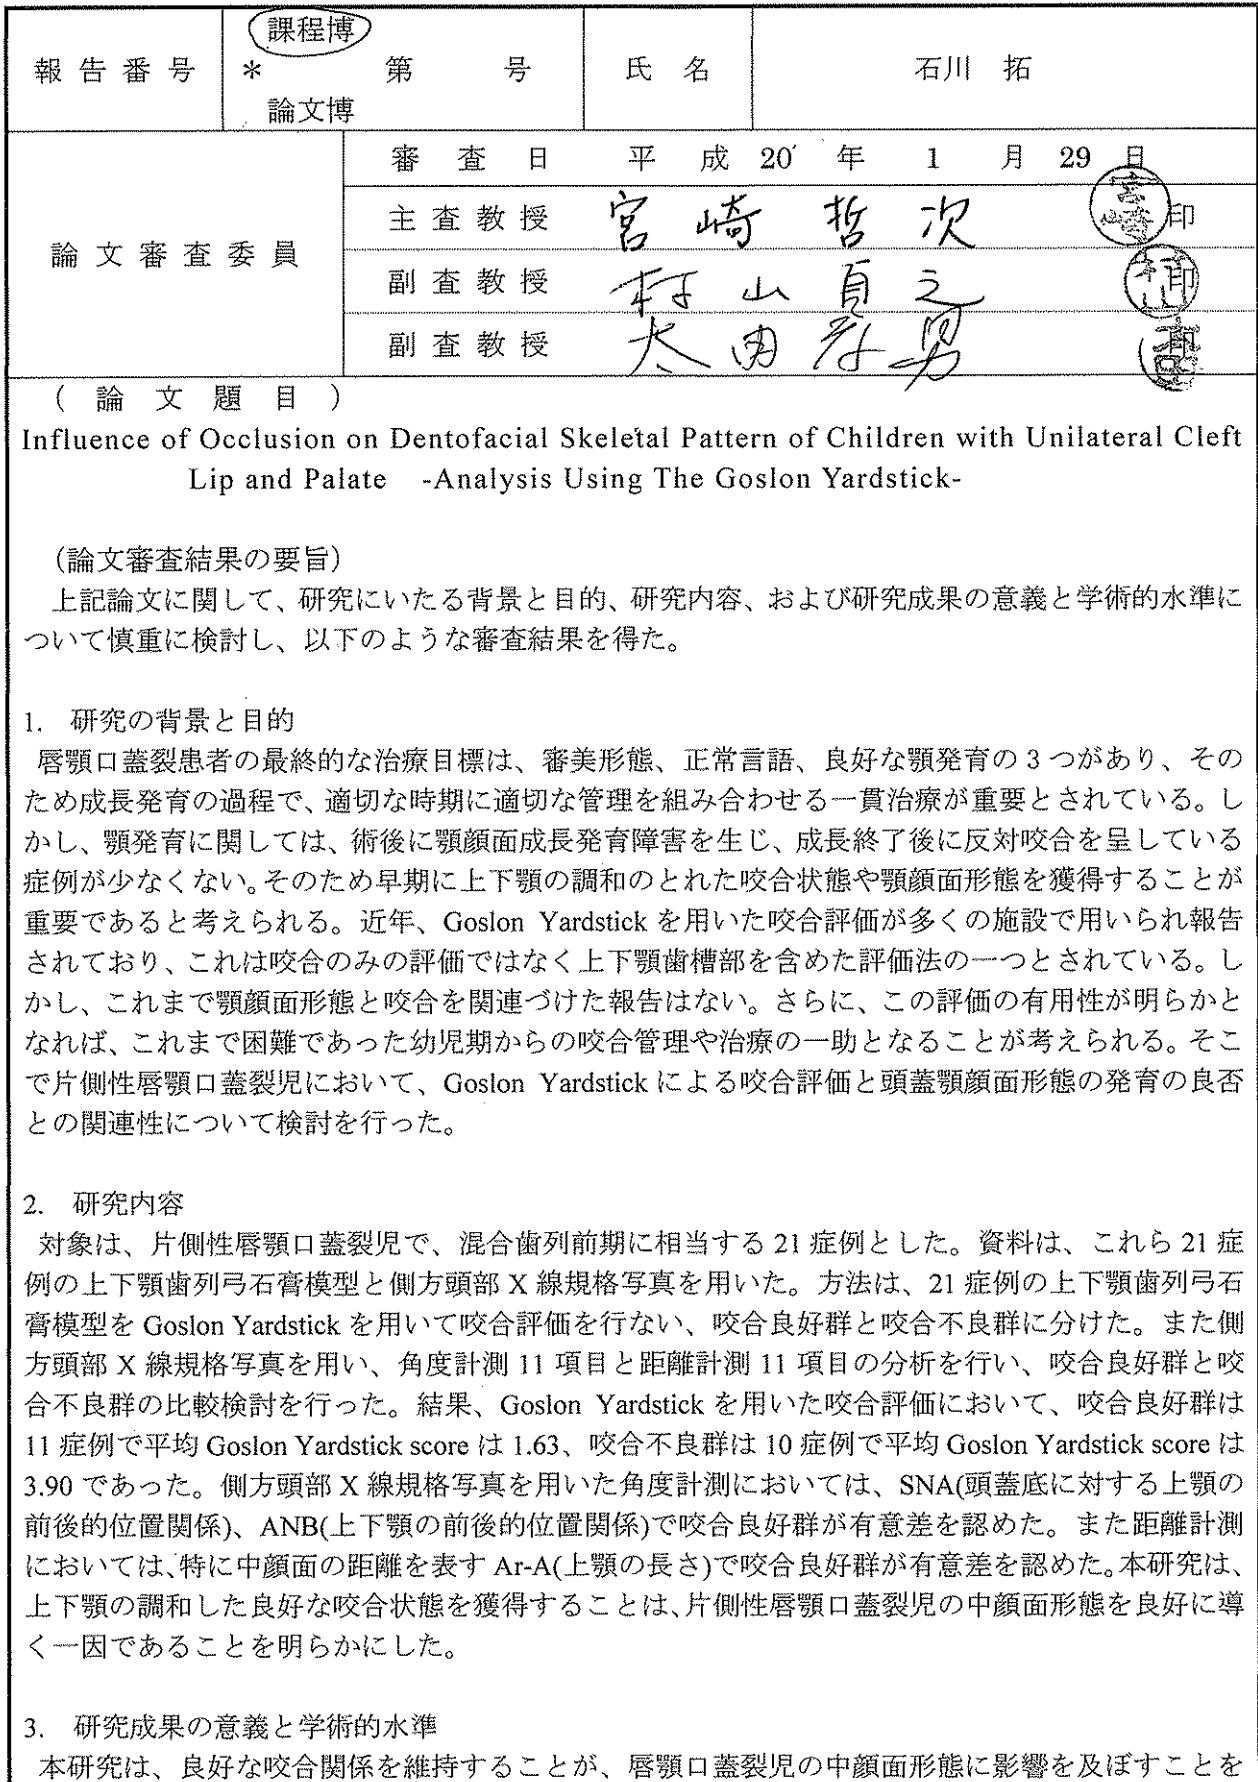 課程博
報告番号 * 第 号 氏名 石川 拓
論文博
審査日 平成 20 年 1 月 29 日
論文審査委員
主査教授 宮崎 哲次 印
副査教授 村山 貞之 印
副査教授 太田 孝男
(論文題目)
Influence of Occlusion on Dentofacial Skeletal Pattern of Children with Unilateral Cleft
Lip and Palate -Analysis Using The Goslon Yardstick-
(論文審査結果の要旨)
上記論文に関して、研究にいたる背景と目的、研究内容、および研究成果の意義と学術的水準に
ついて慎重に検討し、以下のような審査結果を得た。
1. 研究の背景と目的
唇顎口蓋裂患者の最終的な治療目標は、審美形態、正常言語、良好な顎発育の 3 つがあり、その
ため成長発育の過程で、適切な時期に適切な管理を組み合わせる一貫治療が重要とされている。し
かし、顎発育に関しては、術後に顎顔面成長発育障害を生じ、成長終了後に反対咬合を呈している
症例が少なくない。そのため早期に上下顎の調和のとれた咬合状態や顎顔面形態を獲得することが
重要であると考えられる。近年、Goslon Yardstick を用いた咬合評価が多くの施設で用いられ報告
されており、これは咬合のみの評価ではなく上下顎歯槽部を含めた評価法の一つとされている。し
かし、これまで顎顔面形態と咬合を関連づけた報告はない。さらに、この評価の有用性が明らかと
なれば、これまで困難であった幼児期からの咬合管理や治療の一助となることが考えられる。そこ
で片側性唇顎口蓋裂児において、Goslon Yardstick による咬合評価と頭蓋顎顔面形態の発育の良否
との関連性について検討を行った。
2. 研究内容
対象は、片側性唇顎口蓋裂児で、混合歯列前期に相当する 21 症例とした。資料は、これら 21 症
例の上下顎歯列弓石膏模型と側方頭部 X 線規格写真を用いた。方法は、21 症例の上下顎歯列弓石
膏模型を Goslon Yardstick を用いて咬合評価を行ない、咬合良好群と咬合不良群に分けた。また側
方頭部 X 線規格写真を用い、角度計測 11 項目と距離計測 11 項目の分析を行い、咬合良好群と咬
合不良群の比較検討を行った。結果、Goslon Yardstick を用いた咬合評価において、咬合良好群は
11 症例で平均 Goslon Yardstick score は 1.63、咬合不良群は 10 症例で平均 Goslon Yardstick score は
3.90 であった。側方頭部 X 線規格写真を用いた角度計測においては、SNA(頭蓋底に対する上顎の
前後的位置関係)、ANB(上下顎の前後的位置関係)で咬合良好群が有意差を認めた。また距離計測
においては、特に中顔面の距離を表す Ar-A(上顎の長さ)で咬合良好群が有意差を認めた。本研究は、
上下顎の調和した良好な咬合状態を獲得することは、片側性唇顎口蓋裂児の中顔面形態を良好に導
く一因であることを明らかにした。
3. 研究成果の意義と学術的水準
本研究は、良好な咬合関係を維持することが、唇顎口蓋裂児の中顔面形態に影響を及ぼすことを